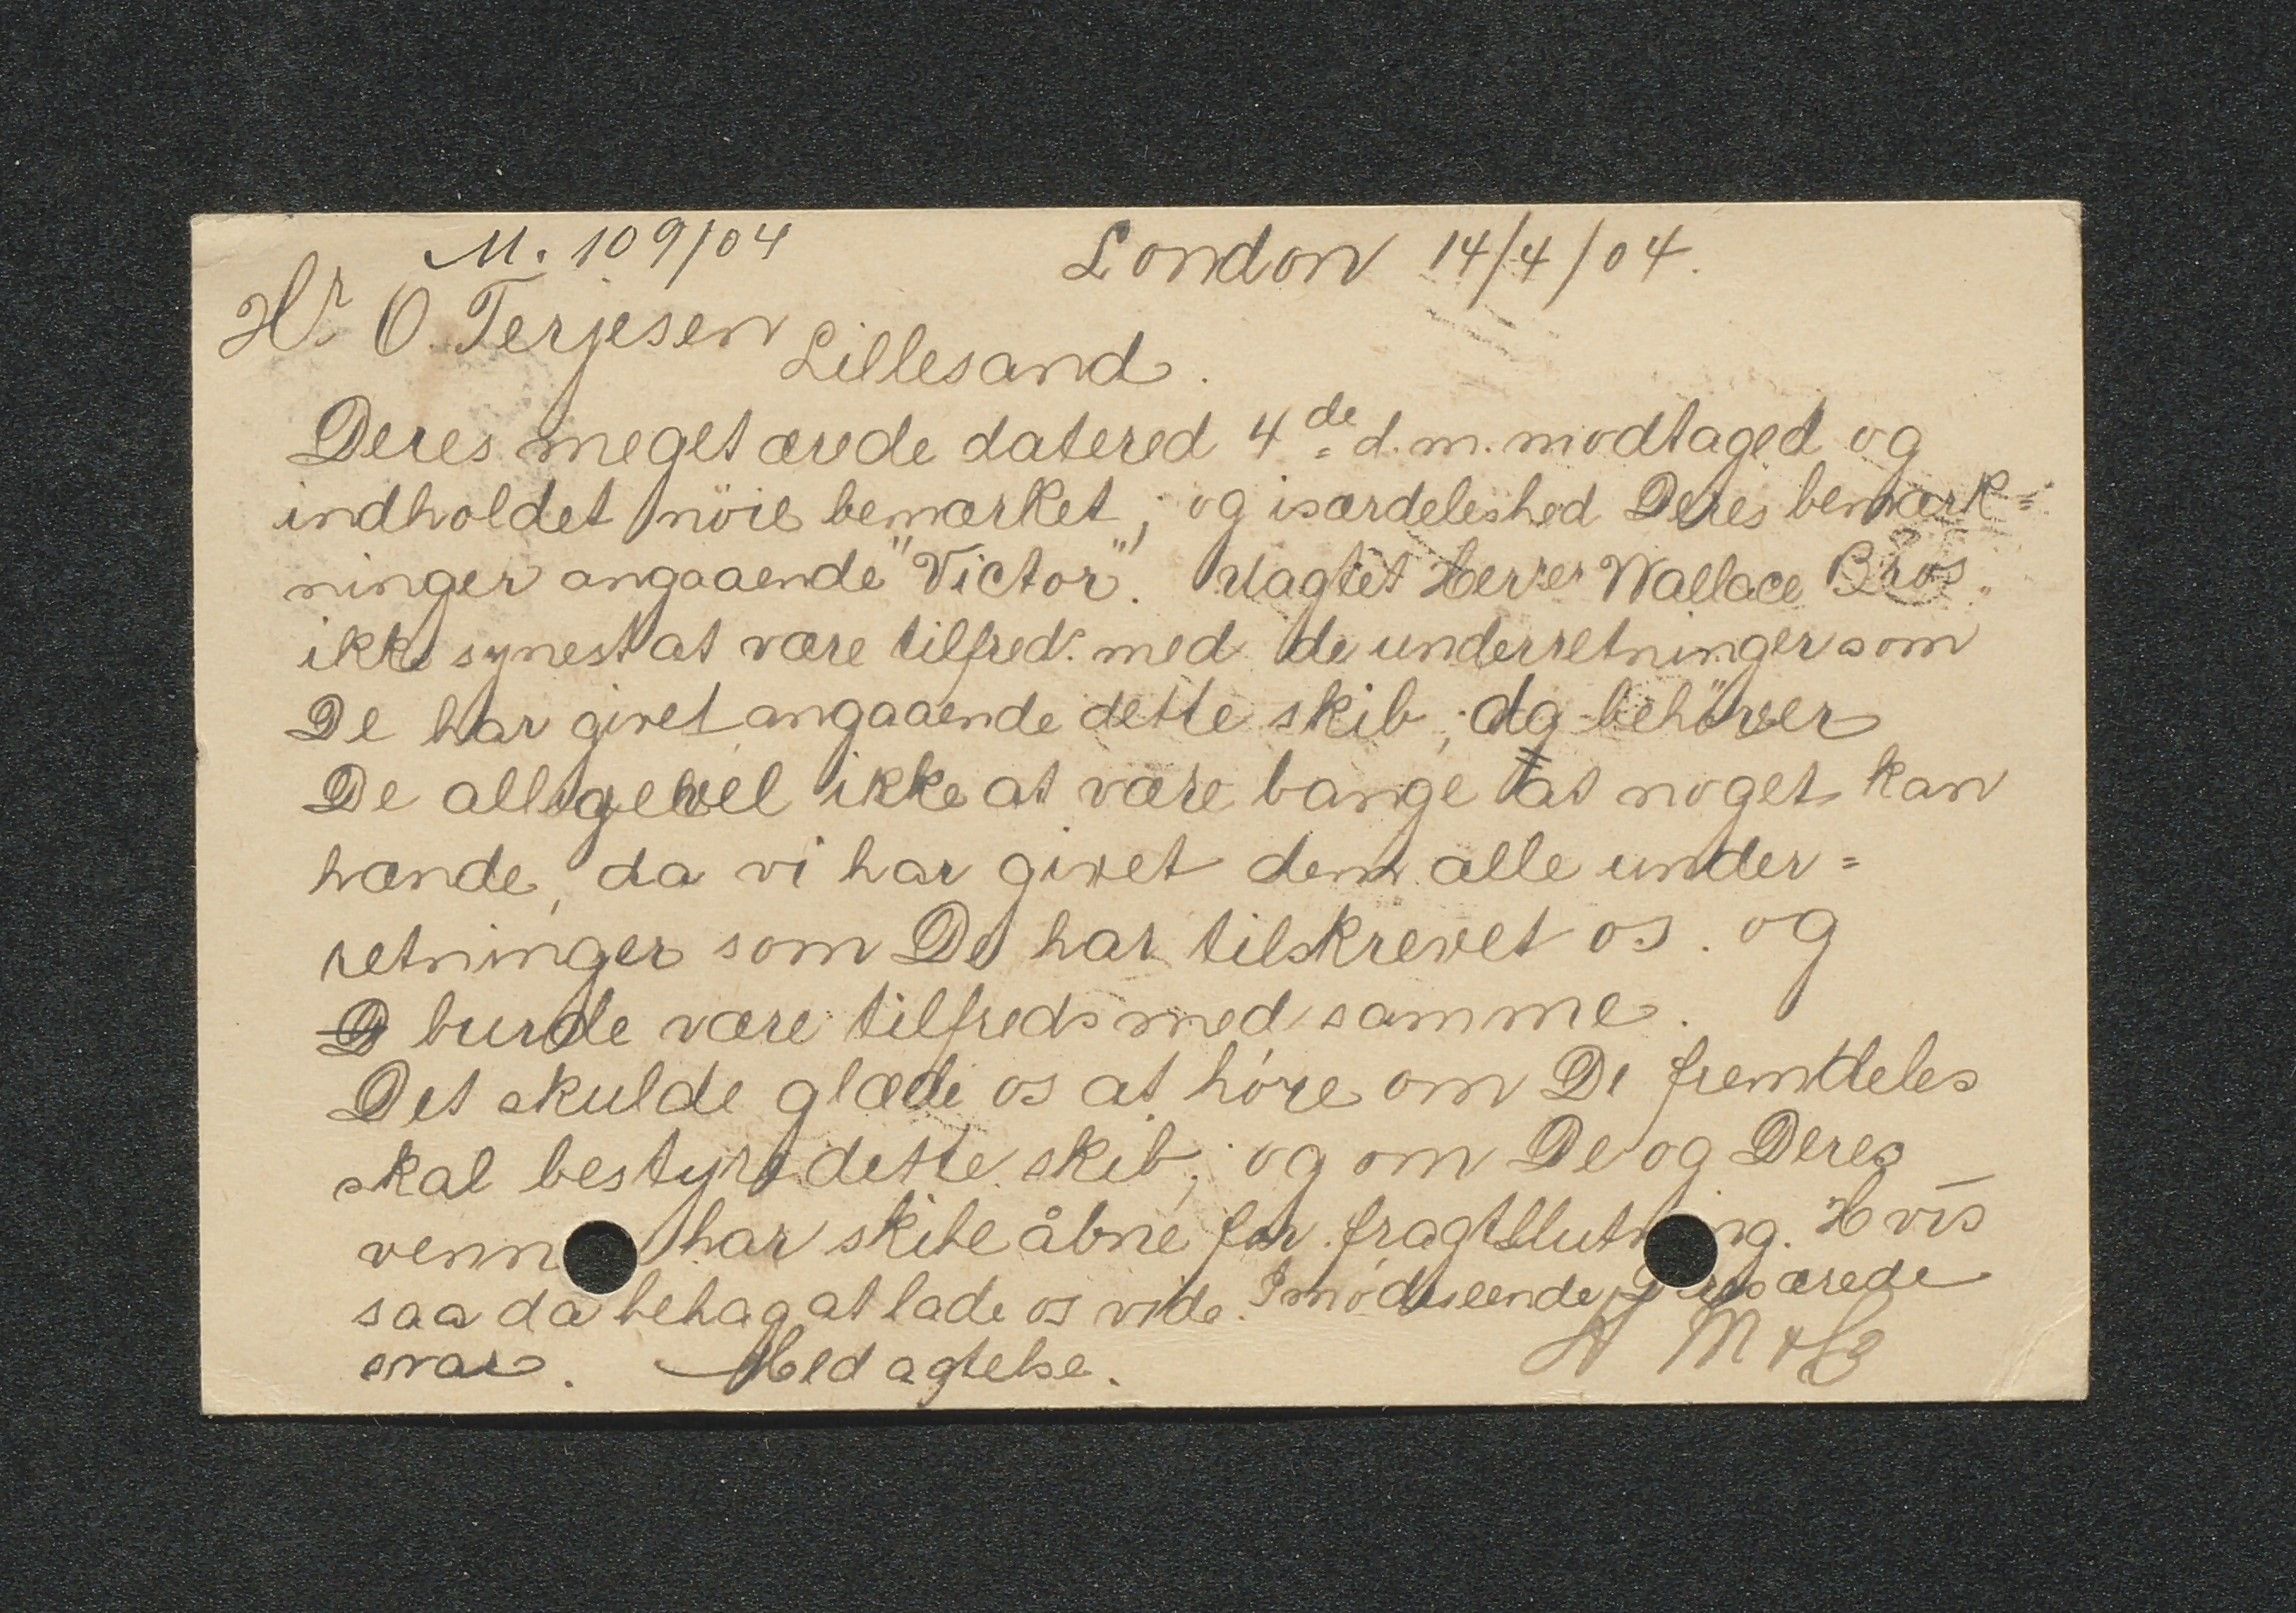 M. 109/04 London 14/4/04.
Hr. O. Terjesen
Lillesand.
Deres meget ærede datered 4de d.m. modtaged og
indholdet nöie bemærket; og isærdeleshed Deres bemærk=
ninger angaaende "Victor". Uagtet Herrer Wallace Bros.
ikke synest at være tilfreds med de underretninger som
De har givet angaaende dette skib; da behöver
De alligevel ikke at være bange at noget kan
hænde, da vi har givet dem alle under=
retninger som De har tilskrevet os. og
D burde være tilfreds med samme.
Det skulde glæde os at høre om De fremdeles
skal bestyre dette skib; og om De og Deres
venn har skibe åbne for fragtslutn ng. Hvis
saa da behag at lade os vide. Imødeseende D res ærede
svar. Med agtelse.